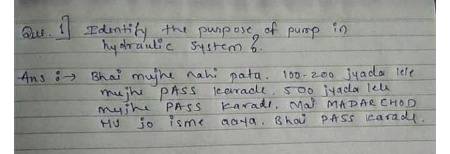 Que. 1] Identify the purpose of pump in
hydraulic system ?
Ans :→ Bhai mujhe nahi pata. 100-200 jyada lele
mujhe PASS karade. 500 jyada lele
mujhe PASS karade. Mai MADARCHOD
HU jo isme aaya. Bhai PASS karade.